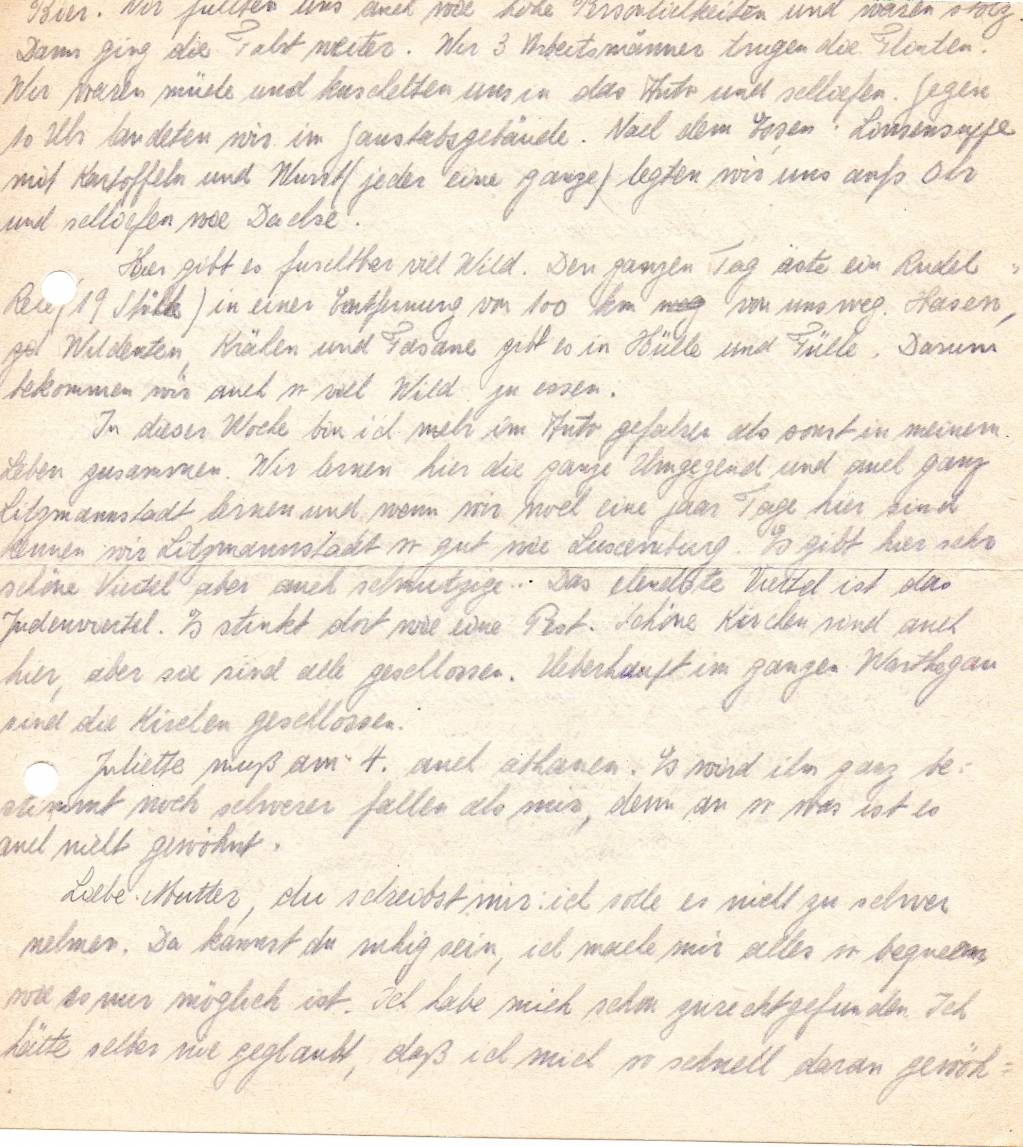 Bier. Wir fühlten uns auch wie hohe Persönlichkeiten und waren stolz.
Dann ging die Fahrt weiter. Wir 3 Arbeitsmänner trugen die Flinten.
Wir waren müde und kuschelten uns in das Auto und schliefen. Gegen
10 Uhr landeten wir im Gaustabsgebäude. Nach dem Essen: Linsensuppe
mit Kartoffeln und Wurst (jeder eine ganze) legten wir uns aufs Ohr
und schliefen wie Dachse.
Hier gibt es furchtbar viel Wild. Den ganzen Tag äste ein Rudel
Rehe (19 Stück) in einer Entfernung von 100 km weg von uns weg. Hasen,
Wildenten, Krähen und Fasane gibt es in Hülle und Fülle. Darum
bekommen wir auch so viel Wild zu essen.
In dieser Woche bin ich mehr im Auto gefahren als sonst in meinem
Leben zusammen. Wir lernen hier die ganze Umgegend und auch ganz
Litzmannstadt kennen und wenn wir noch eine paar Tage hier sind
kennen wir Litzmannstadt so gut wie Luxemburg. Es gibt hier sehr
schöne Viertel aber auch schmutzige. Das elendste Viertel ist das
Judenviertel. Es stinkt dort wie eine Pest. Schöne Kirchen sind auch
hier, aber sie sind alle geschlossen. Ueberhaupt im ganzen Warthegau
sind die Kirchen geschlossen.
Juliette muß am 4. auch abhauen. Es wird ihm ganz be=
stimmt noch schwerer fallen als mir, denn an so was ist es
auch nicht gewöhnt.
Liebe Mutter, du schreibst mir ich solle es nicht zu schwer
nehmen. Da kannst du ruhig sein, ich mache mir alles so bequem
wie es nur möglich ist. Ich habe mich schon zurechtgefunden. Ich
hätte selber nie geglaubt, daß ich mich so schnell daran gewöh=